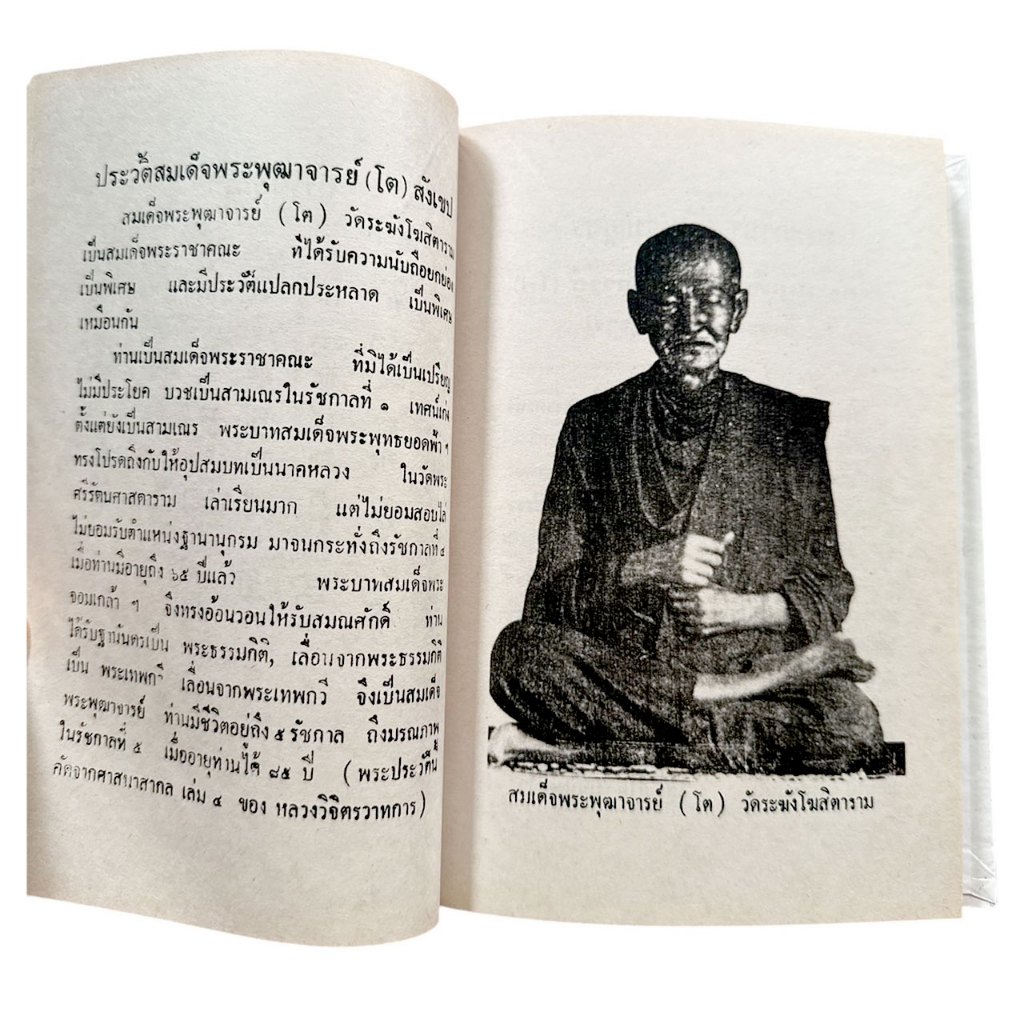 ประวัติสมเด็จพระพุฒาจารย์ (โต) สังเขป
สมเด็จพระพุฒาจารย์ (โต) วัดระฆังโฆสิตาราม
เป็นสมเด็จพระราชาคณะ ที่ได้รับความนับถือยกย่อง
เป็นพิเศษ และมีประวัติแปลกประหลาด เป็นพิเศษ
เหมือนกัน
ท่านเป็นสมเด็จพระราชาคณะ ที่มิได้เป็นเปรียญ
ไม่มีประโยค บวชเป็นสามเณรในรัชกาลที่ ๑ เทศน์เก่ง
ตั้งแต่ยังเป็นสามเณร พระบาทสมเด็จพระพุทธยอดฟ้า ฯ
ทรงโปรดถึงกับให้อุปสมบทเป็นนาคหลวง ในวัดพระ
ศรีรัตนศาสดาราม เล่าเรียนมาก แต่ไม่ยอมสอบไล่
ไม่ยอมรับตำแหน่งฐานานุกรม มาจนกระทั่งถึงรัชกาลที่ ๔
เมื่อท่านมีอายุถึง ๖๕ ปีแล้ว พระบาทสมเด็จพระ
จอมเกล้า ฯ จึงทรงอ้อนวอนให้รับสมณศักดิ์ ท่าน
ได้รับฐานันดรเป็น พระธรรมกิติ, เลื่อนจากพระธรรมกิติ
เป็น พระเทพกวี เลื่อนจากพระเทพกวี จึงเป็นสมเด็จ
พระพุฒาจารย์ ท่านมีชีวิตอยู่ถึง ๕ รัชกาล ถึงมรณภาพ
ในรัชกาลที่ ๕ เมื่ออายุท่านได้ ๘๕ ปี (พระประวัตินี้
คัดจากศาสนาสากล เล่ม ๔ ของ หลวงวิจิตรวาทการ)
สมเด็จพระพุฒาจารย์ (โต) วัดระฆังโฆสิตาราม